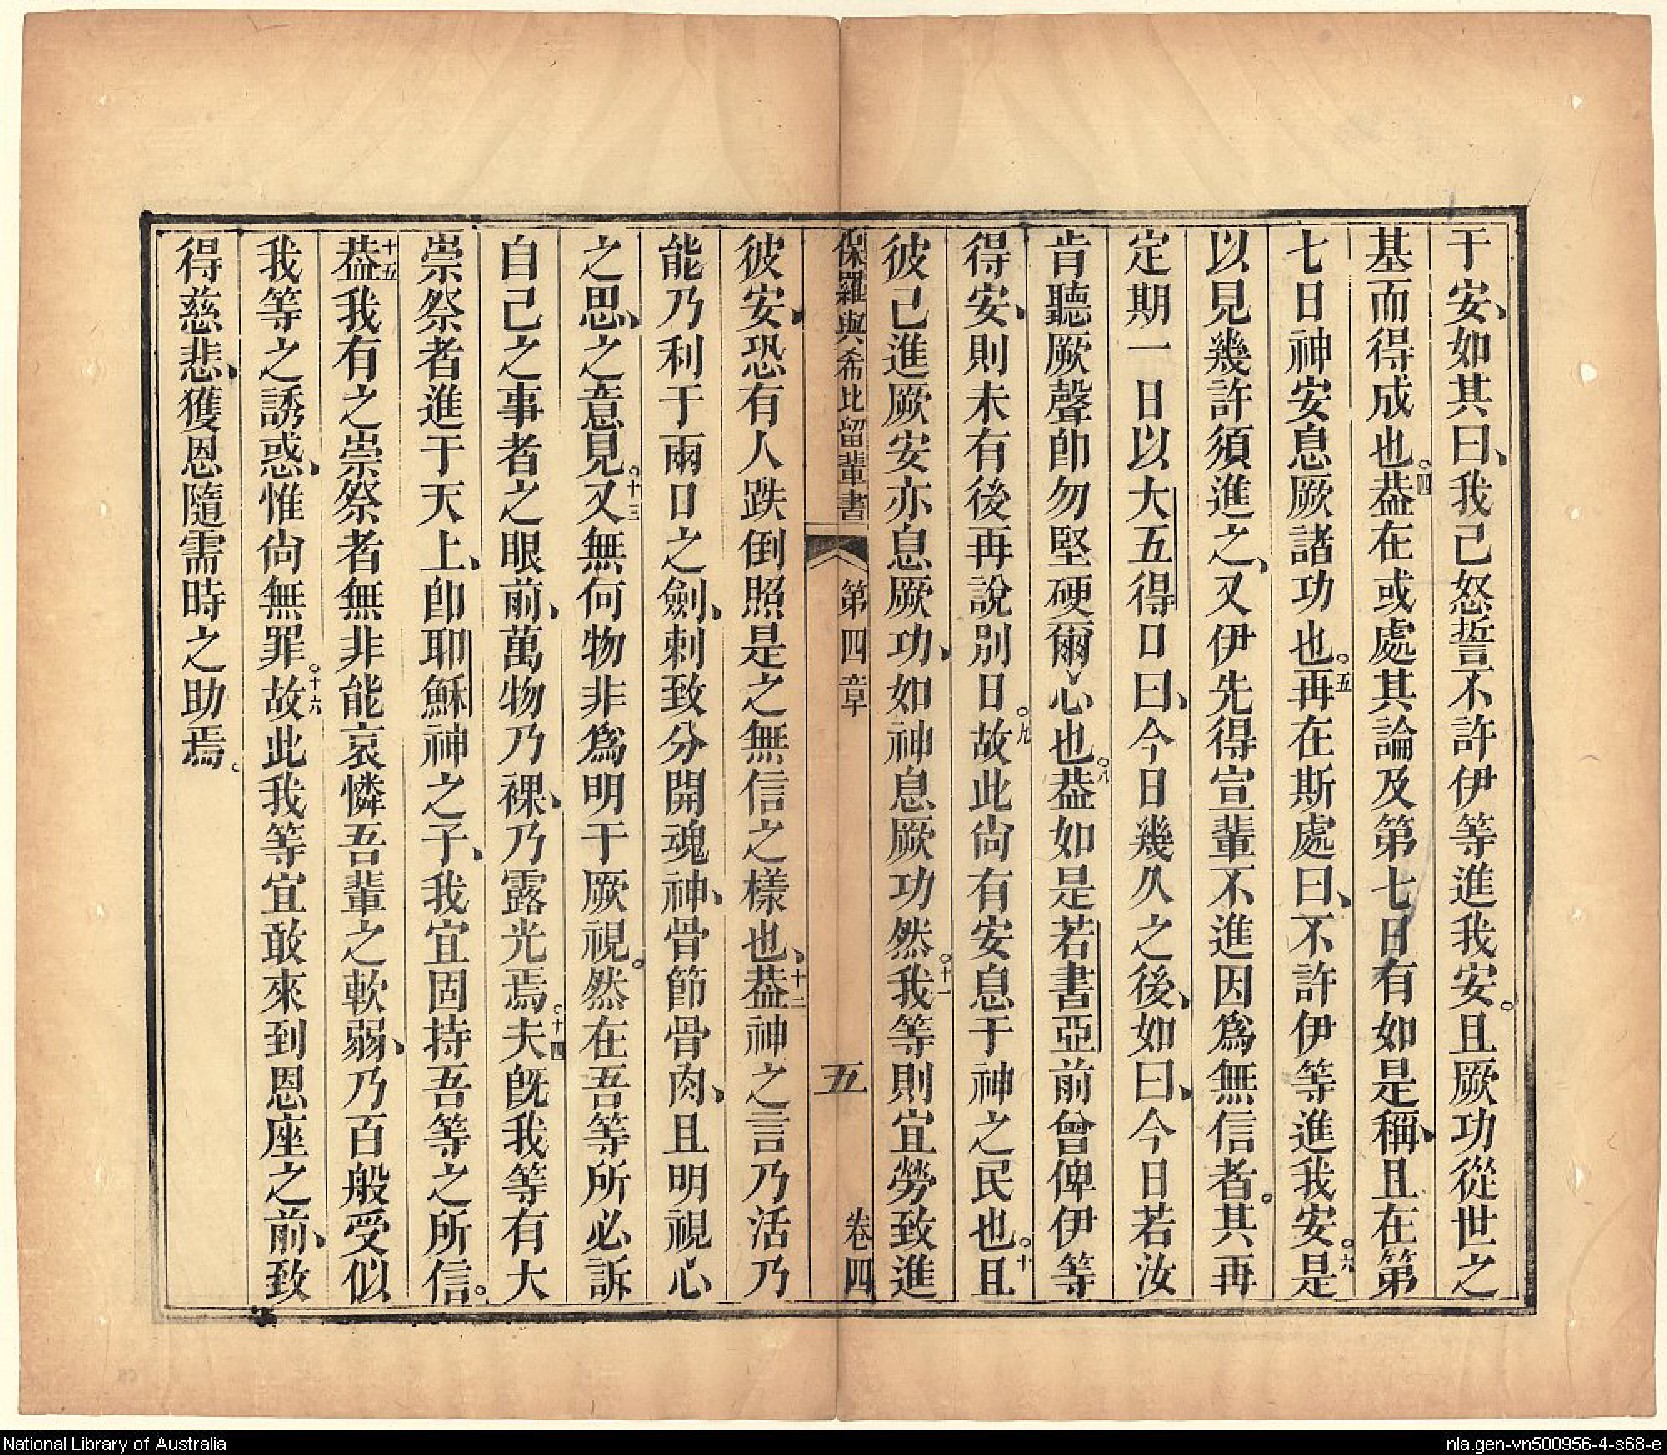 于安、如其曰、我己怒誓不許伊等進我安。且厥功從世之
基而得成也。四葢在或處其論及第七日有如是稱、且在第
七日神安息厥諸功也。五再在斯處曰、不許伊等進我安。六是
以見幾許須進之、又伊先得宣輩不進因爲無信者。其再
定期一日以大五得口曰、今日幾久之後、如曰、今日若汝
肯聽厥聲卽勿堅硬爾心也。八葢如是若書亞前曾俾伊等
得安、則未有後再說別日。九故此尙有安息于神之民也。十且
彼己進厥安亦息厥功、如神息厥功然。十一我等則宜勞致進
保羅與希比留輩書 第四章 五 卷四
彼安、恐有人跌倒照是之無信之樣也、十二葢神之言乃活乃
能乃利于兩口之劍、刺致分開魂神、骨節骨肉、且明視心
之思、之意見。十三又無何物非爲明于厥視。然在吾等所必訴
自己之事者之眼前、萬物乃裸、乃露光焉。十四夫旣我等有大
崇祭者進于天上、卽耶穌神之子、我宜固持吾等之所信。
十五葢我有之崇祭者無非能哀憐吾輩之軟弱、乃百般受似
我等之誘惑、惟尙無罪。十六故此我等宜敢來到恩座之前、致
得慈悲、獲恩隨需時之助焉。
National Library of Australia
nla.gen-vn500956-4-s68-e